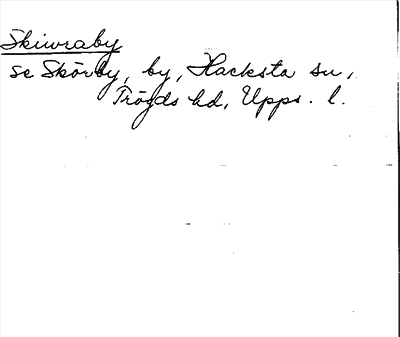 Skiwraby
se Skörby, by, Hacksta sn,
Trögds hd, Upps. l.